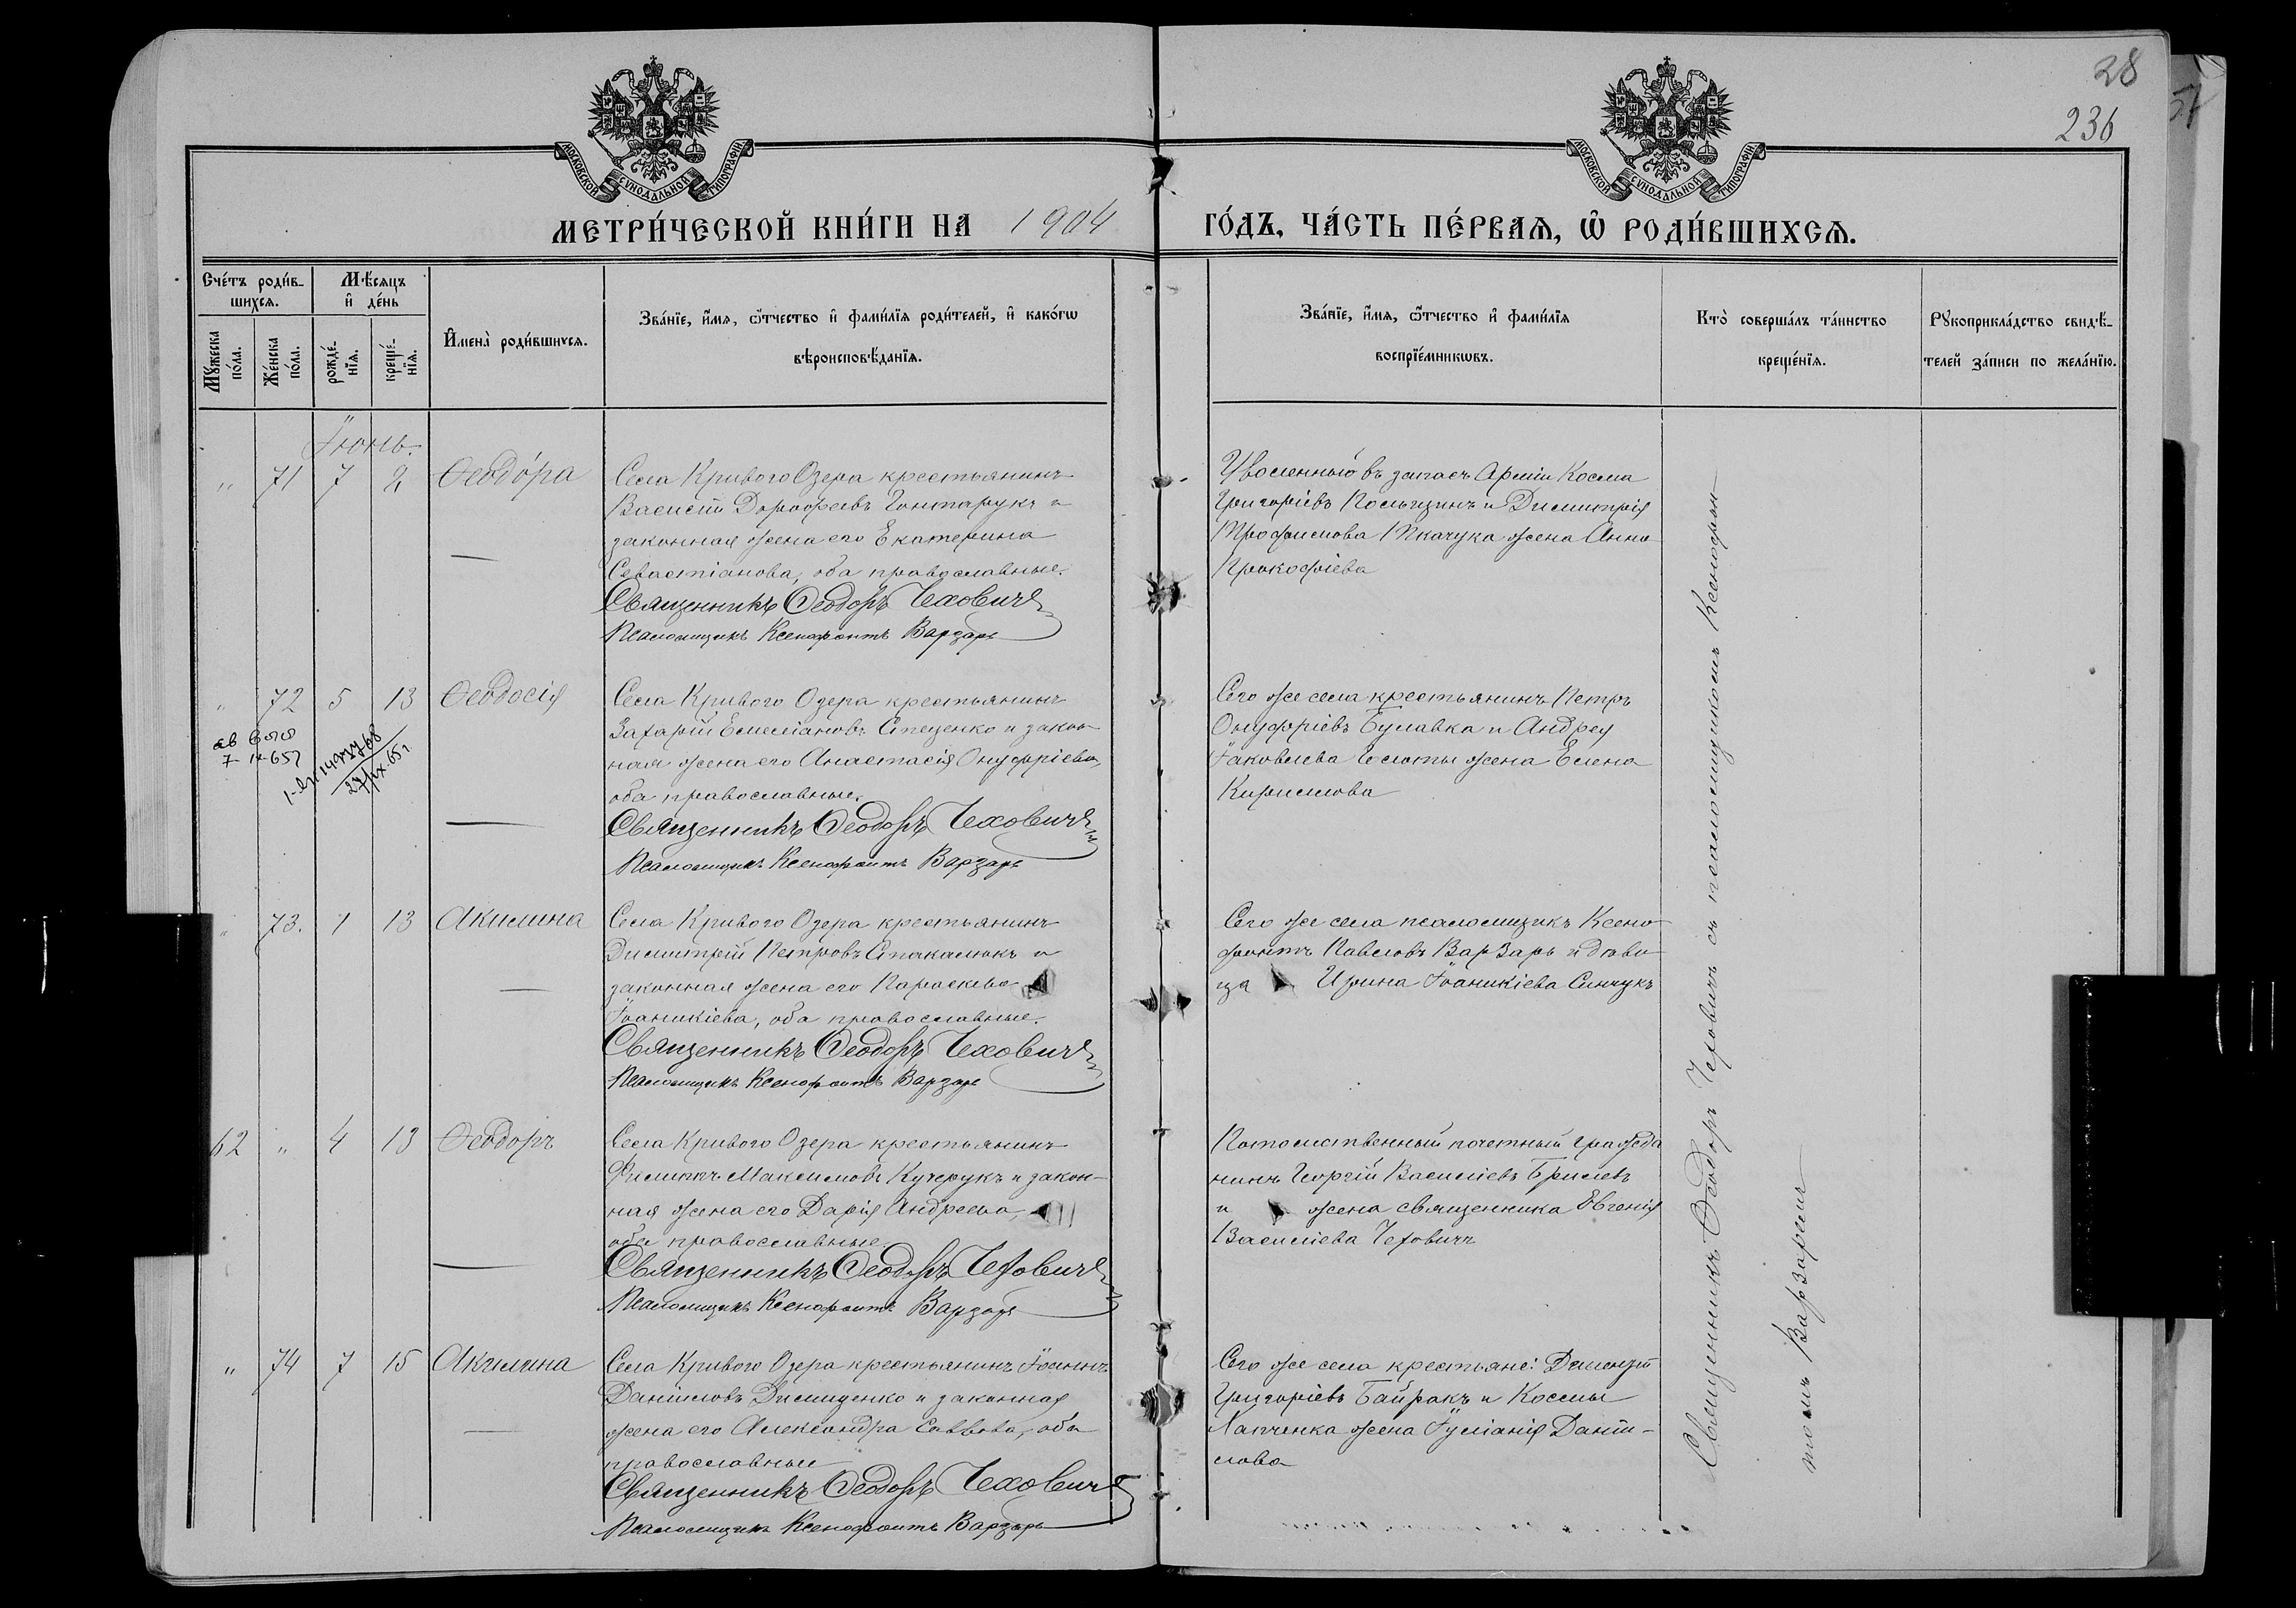 28
236
МОСКОВСКОЙ СѴНОДАЛЬНОЙ ТИПОГРАФІИ
МОСКОВСКОЙ СѴНОДАЛЬНОЙ ТИПОГРАФІИ
МЕТРИ́ЧЕСКОЙ КНИ́ГИ НА 1904
ГО́ДЪ, ЧА́СТЬ ПЕ́РВАѦ, Ѽ РОДИ́ВШИХСѦ.
Сче́тъ роди́в-
шихсѧ.
Мѣ́сѧцъ
и҆ де́нь
Мꙋ́жеска по́ла.
Же́нска по́ла.
рожде́-нїѧ.
креще́-нїѧ.
И҆мена̀ роди́вшихсѧ.
Зва́нїе, и҆́мѧ, ѻ҆́тчество и҆ фами́лїѧ роди́телей, и҆ како́гѡ
вѣроисповѣ́данїѧ.
Зва́нїе, и҆́мѧ, ѻ҆́тчество и҆ фами́лїѧ
воспрїе́мникѡвъ.
Кто̀ соверша́лъ та́инство
креще́нїѧ.
Рꙋкоприкла́дство свидѣ́-
телей за́писи по жела́нїю.
Іюнь.
„ 71 7 2 Ѳеодо́ра
Села Кривого Озера крестьянинъ
Василій Дороѳеевъ Гонтарукъ и
законная жена его Екатерина
Севастіанова, оба православные.
Священникъ Ѳеодоръ Чеховичъ
Псаломщикъ Ксенофонтъ Варзарь
Уволенный въ запасъ Арміи Косма
Григоріевъ Польщинъ и Димитрія
Трофимова Ткачука жена Анна
Прокофіева
„ 72 5 13 Ѳеодосія
Села Кривого Озера крестьянинъ
Захарій Емеліановъ Спеценко и закон-
ная жена его Анастасія Онуфріева,
оба православные.
Священникъ Ѳеодоръ Чеховичъ
Псаломщикъ Ксенофонтъ Варзарь
Сего же села крестьянинъ Петръ
Онуфріевъ Булавка и Андрея
Іаковлева жена Елена
Кириллова
„ 73. 1 13 Акилина
Села Кривого Озера крестьянинъ
Димитрій Петровъ Стакалюкъ и
законная жена его Параскева
Іоаникіева, оба православные.
Священникъ Ѳеодоръ Чеховичъ
Псаломщикъ Ксенофонтъ Варзарь
Сего же села псаломщикъ Ксено-
фонтъ Павловъ Варзарь и дѣви-
ца Ирина Іоаникіева Синчукъ
62 „ 4 13 Ѳеодоръ
Села Кривого Озера крестьянинъ
Филиппъ Максимовъ Кучерукъ и закон-
ная жена его Дарія Андреева,
оба православные.
Священникъ Ѳеодоръ Чеховичъ
Псаломщикъ Ксенофонтъ Варзарь
Потомственный почетный гражда-
нинъ Георгій Василіевъ Брилевъ
и жена священника Евгенія
Василіева Чеховичъ
„ 74 7 15 Акилина
Села Кривого Озера крестьянинъ Іоаннъ
Даніиловъ Димиденко и законная
жена его Александра Саввова, оба
православные
Священникъ Ѳеодоръ Чеховичъ
Псаломщикъ Ксенофонтъ Варзарь
Сего же села крестьяне: Дометій
Григоріевъ Байракъ и Космы
Лапченка жена Іуліанія Даніи-
лова
Священникъ Ѳеодоръ Чеховичъ съ псаломщикомъ Ксенофон-
томъ Варзаремъ